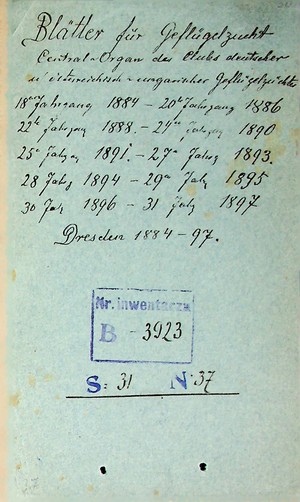 Blätter für Geflügelzucht
Central-Organ des Clubs deutscher
u österreichisch-ungarischer Geflügelzüchter
18ter Jahrgang 1884 - 20te Jahrgang 1886
22te Jahrgang 1888. - 24te Jahrgang 1890
25e Jahrg 1891. - 27e Jahrg 1893.
28 Jahrg 1894 - 29e Jahrg 1895
30 Jahrg 1896 - 31 Jahrg 1897
Dresden 1884-97.
Nr. inwentarza
B - 3923
S: 31 N: 37